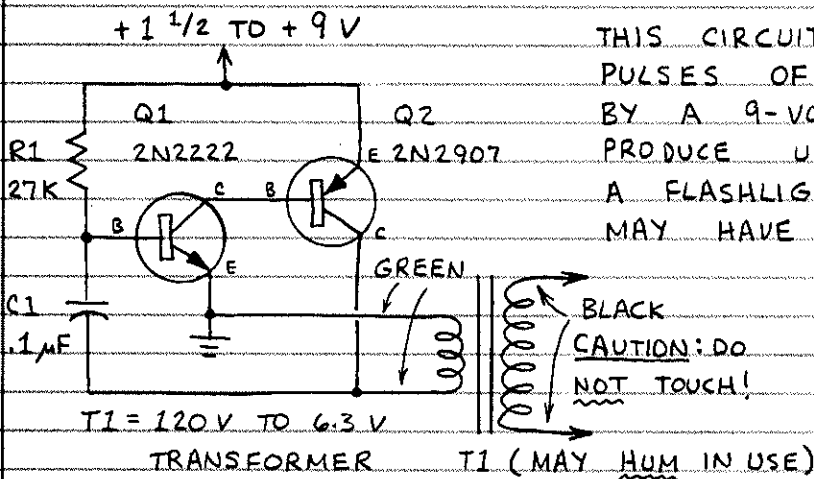 + 1 1/2 TO + 9 V
THIS CIRCUIT
PULSES OF
BY A 9-VO
PRODUCE U
A FLASHLIG
MAY HAVE
Q1
2N2222
Q2
2N2907
R1
27K
B
C
E
B
E
C
C1
.1µF
GREEN
BLACK
CAUTION: DO
NOT TOUCH!
T1 = 120 V TO 6.3 V
TRANSFORMER
T1 (MAY HUM IN USE)